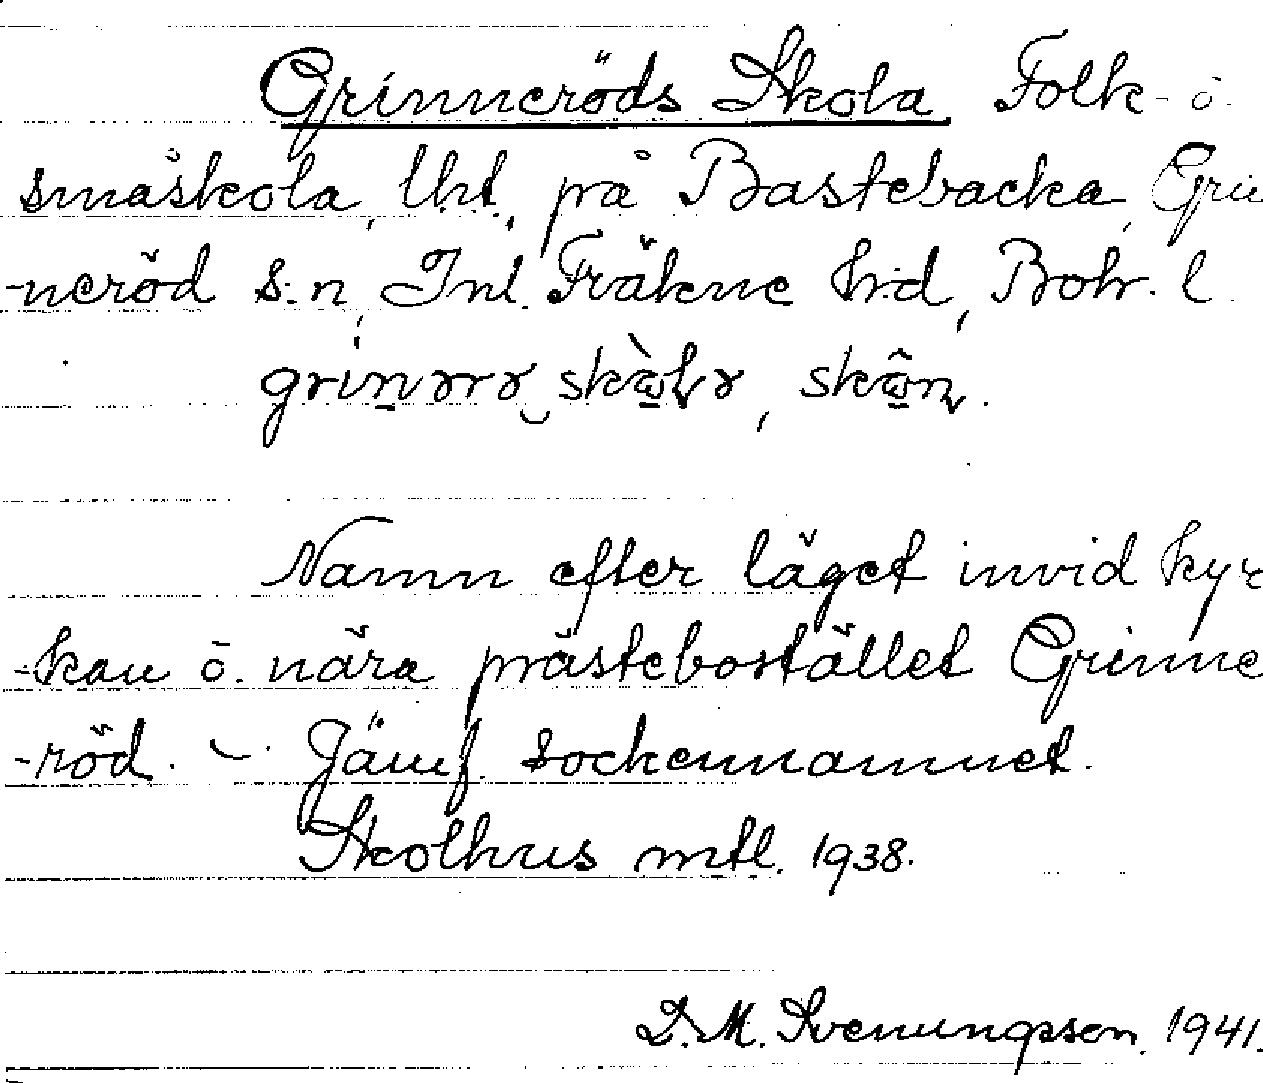 Grinneröds Skola Folk- o.
småskola, lht, på Bastebacka, Grin
-neröd s:n, Inl. Fräkne h:d, Boh. l.
Namn efter läget invid kyr
-kan o. nära prästebostället Grinne
-röd. – Jämf. sockennamnet.
Skolhus mtl. 1938.
D. M. Svenungsson, 1941.